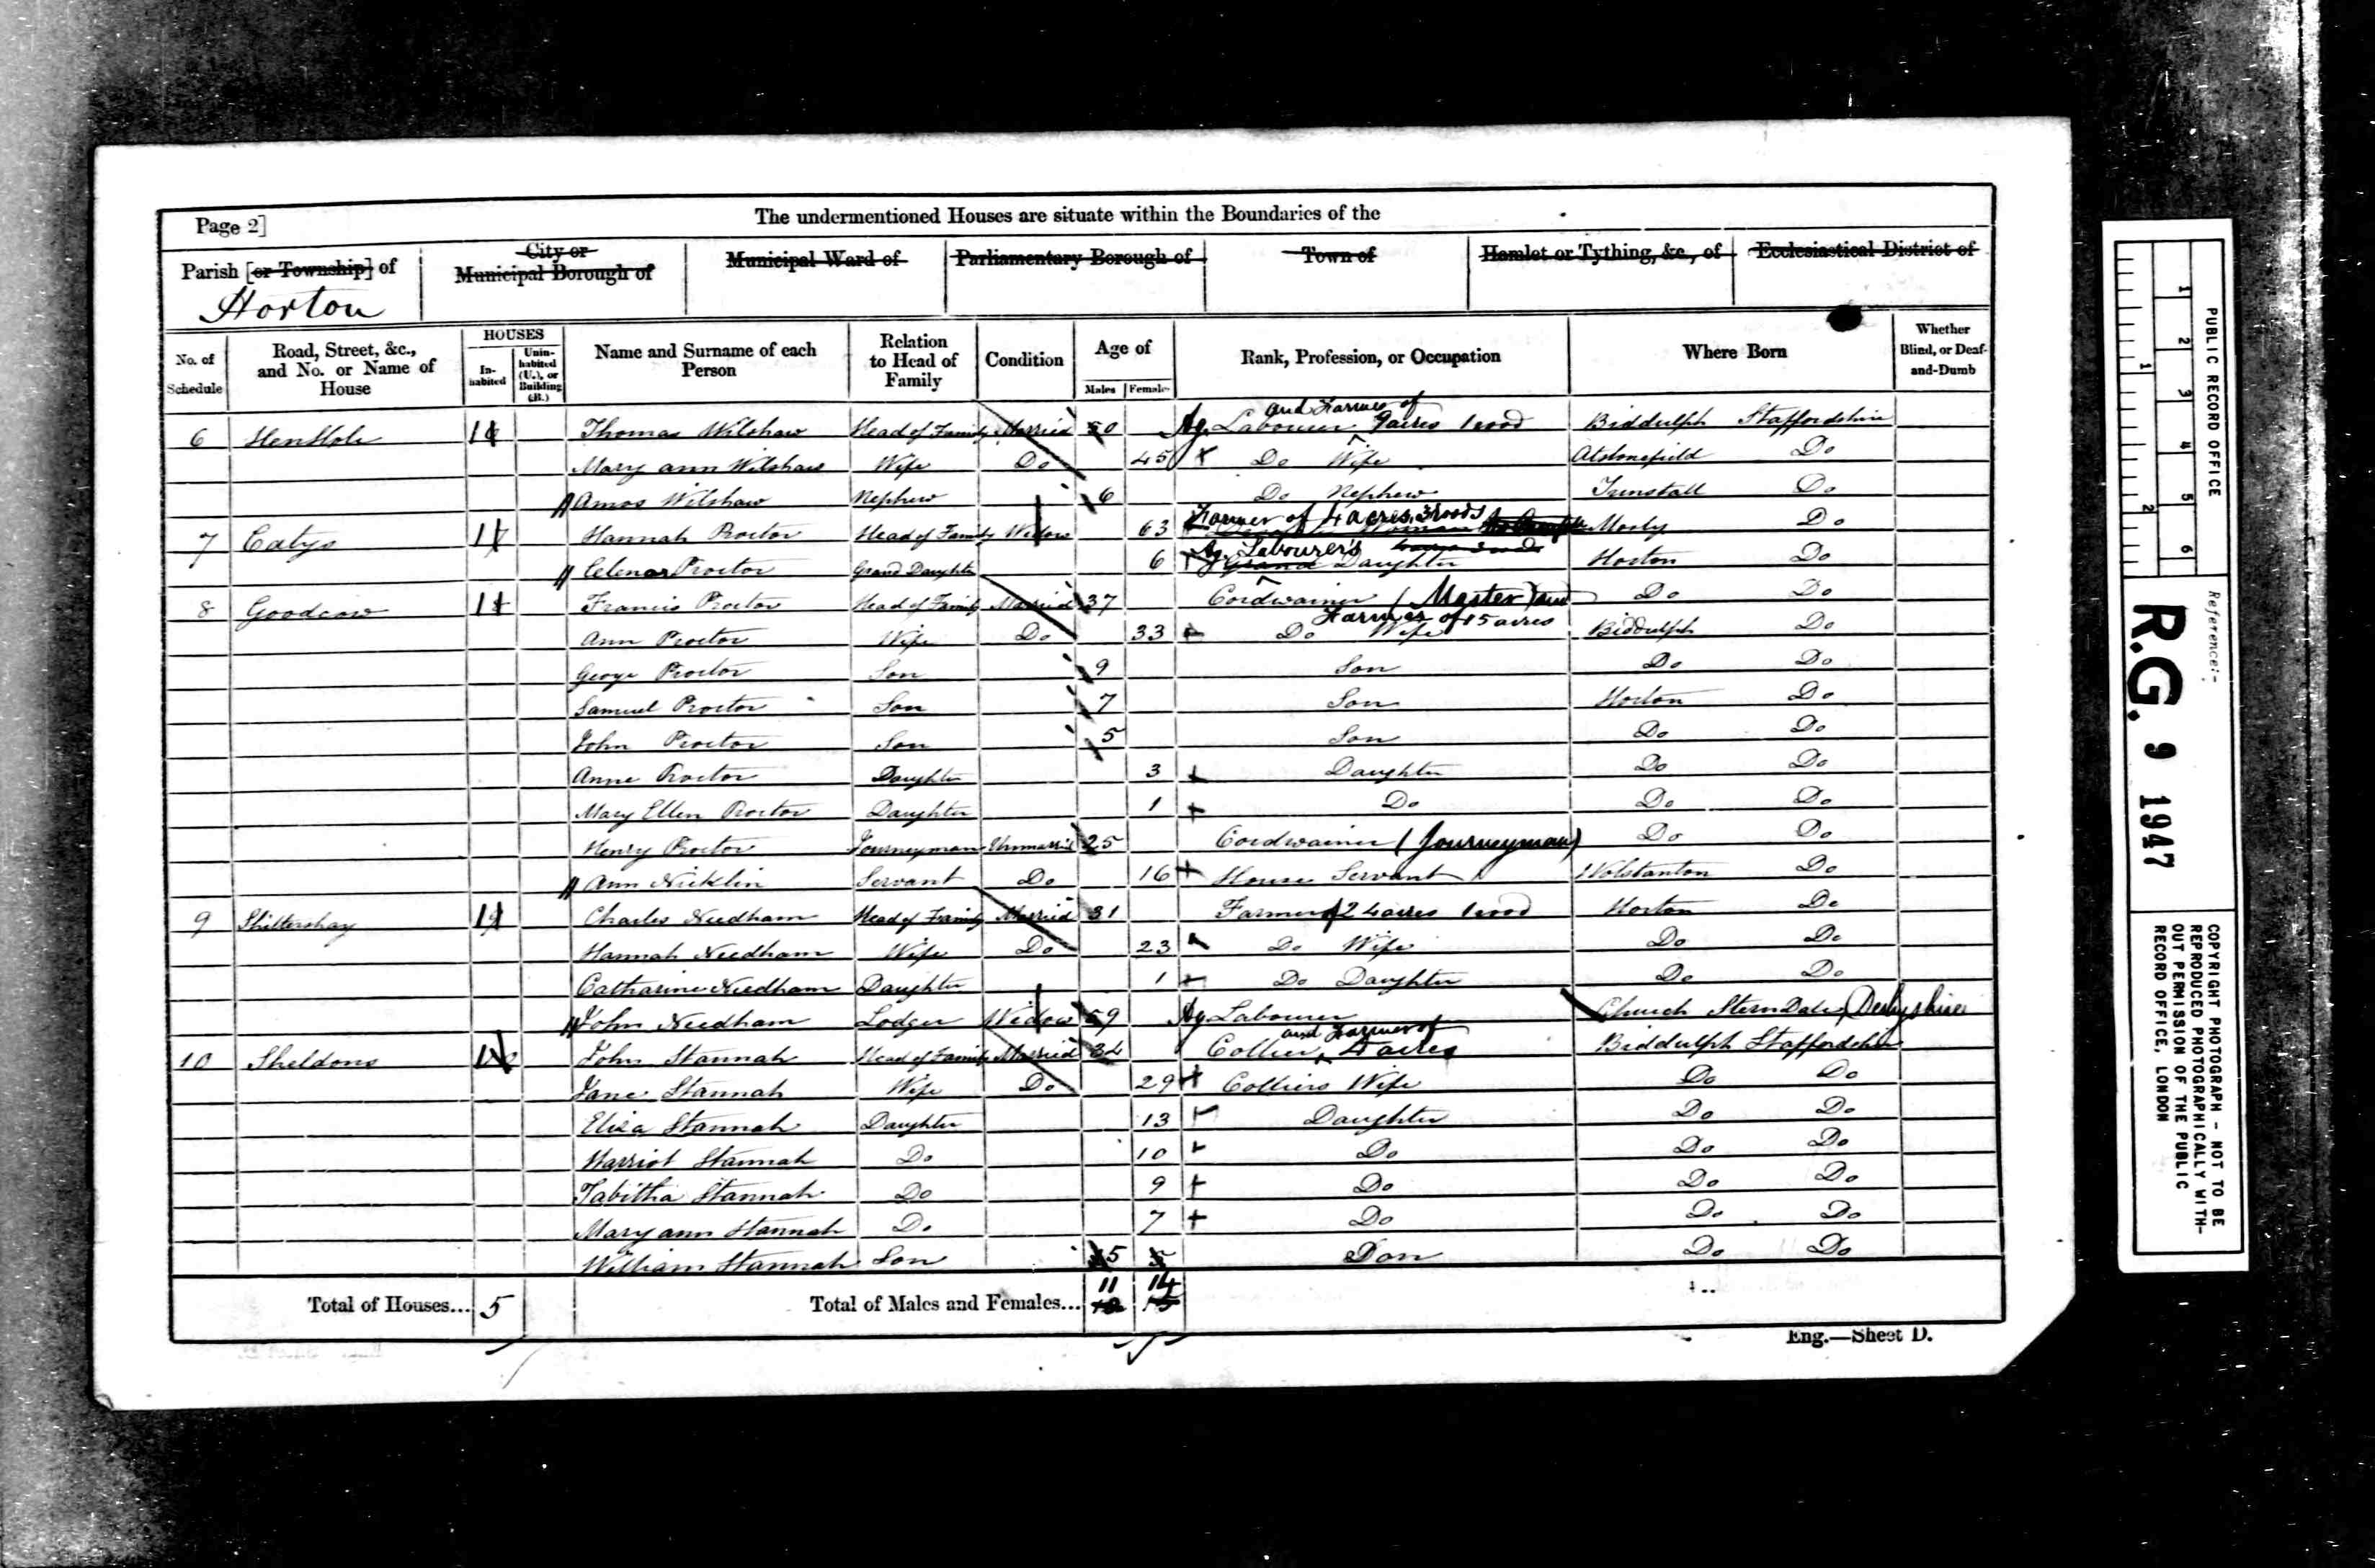 Page 2]
The undermentioned Houses are situate within the Boundaries of the
Parish [or Township] of
Horton
City or Municipal Borough of
Municipal Ward of
Parliamentary Borough of
Town of
Hamlet or Tything, &c., of
Ecclesiastical District of
No. of Schedule
Road, Street, &c., and No. or Name of House
HOUSES
In-habited
Unin-habited (U.), or Building (B.)
Name and Surname of each Person
Relation to Head of Family
Condition
Age of
Males
Females
Rank, Profession, or Occupation
Where Born
Whether Blind, or Deaf-and-Dumb
6 Hen Hole 1 Thomas Wilshaw Head of Family Married 50 Ag. Labourer and Farmer of 9 acres 1 rood Biddulph Staffordshire
Mary ann Wilshaw Wife Do 45 Do Wife Alstonefield Do
Amos Wilshaw Nephew 6 Do Nephew Tunstall Do
7 1 Hannah Proctor Head of Family Widow 63 Farmer of 4 acres 3 roods Do
Proctor Grand Daughter 6 Ag. Labourer's Grand Daughter Horton Do
8 Goodcow 1 Francis Proctor Head of Family Married 37 Cordwainer (Master) and Farmer of 15 acres Do Do
Ann Proctor Wife Do 33 Do Wife Biddulph Do
George Proctor Son 9 Son Do Do
Samuel Proctor Son 7 Son Horton Do
John Proctor Son 5 Son Do Do
Anne Proctor Daughter 3 Daughter Do Do
Mary Ellen Proctor Daughter 1 Do Do Do
Henry Proctor Journeyman Unmarried 25 Cordwainer (Journeyman) Do Do
Ann Nicklin Servant Do 16 House Servant Wolstanton Do
9 1 Charles Needham Head of Family Married 31 Farmer of 24 acres 1 rood Horton Do
Hannah Needham Wife Do 23 Do Wife Do Do
Catharine Needham Daughter 1 Do Daughter Do Do
John Needham Lodger Widow 59 Ag. Labourer Church SternDale Derbyshire
10 Sheldons 1 John Stannah Head of Family Married 34 Collier and Farmer of 4 acres Biddulph Staffordshire
Jane Stannah Wife Do 29 Colliers Wife Do Do
Eliza Stannah Daughter 13 Daughter Do Do
Harriot Stannah Do 10 Do Do Do
Tabitha Stannah Do 9 Do Do Do
Mary ann Stannah Do 7 Do Do Do
William Stannah Son 5 5 Son Do Do
Total of Houses... 5
Total of Males and Females... 11 14
Eng.—Sheet D.
PUBLIC RECORD OFFICE
1 2 3 4 5 6
1 2
Reference:-
R.G. 9 1947
COPYRIGHT PHOTOGRAPH – NOT TO BE
REPRODUCED PHOTOGRAPHICALLY WITH-
OUT PERMISSION OF THE PUBLIC
RECORD OFFICE, LONDON